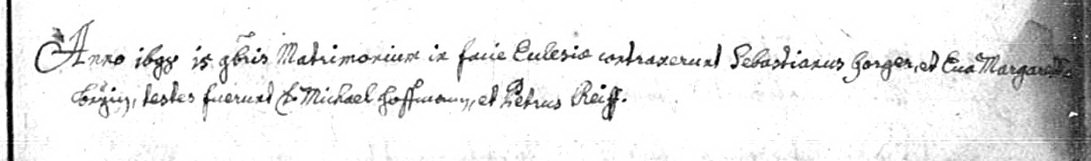 Anno 1698 15 9bris Matrimonium in facie Eclesiæ contraxerunt Sebastianus Horger, et Eva Margareta
testes fuerunt Michael Hoffmann, et Petrus Reiff.